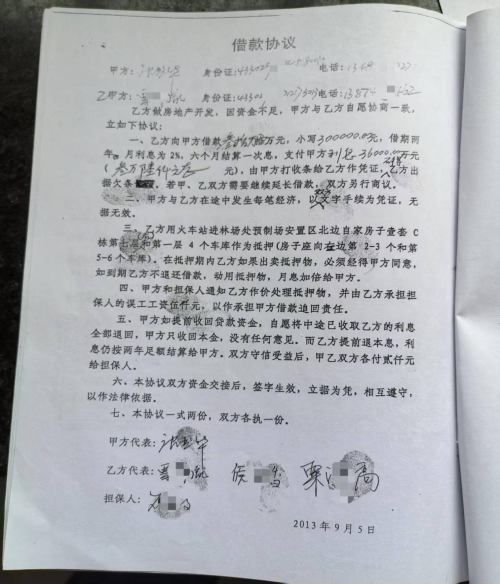 借款协议
甲方： 身份证： 电话：
乙甲方： 身份证： 电话：
乙方做房地产开发，因资金不足，甲方与乙方自愿协商一致，
立如下协议：
一、乙方向甲方借款 万元，小写300000.00元，借期两
年。月利息为2%，六个月结算一次息，支付甲方利息36000.00万元
（叁万陆仟元 元），由甲方打收条给乙方作凭证，乙方出
据欠条 。若甲、乙双方需要继续延长借款，双方另行商议。
二、甲方与乙方在途中发生每笔经济，以文字手续为凭证，无
据无效。
三、乙方用火车站进林场处预制场安置区北边自家房子壹套 C
栋第七层和第一层 4 个车库作为抵押(房子座向左边第 2-3 个和第
5-6 个车库)。在抵押期内乙方如果出卖抵押物，必须经得甲方同意，
如到期乙方不退还借款，动用抵押物，月息加倍给甲方。
四、甲方和担保人通知乙方作价处理抵押物，并由乙方承担担
保人的误工工资伍仟元，以作承甲方借款追回责任。
五、甲方如提前收回贷款资金，自愿将中途已收取乙方的利息
全部退回，甲方只收回本金，没有任何意见。而乙方提前退本息，利
息仍按两年足额结算给甲方。双方守信受益后，甲乙双方各付贰仟元
给担保人。
六、本协议双方资金交接后，签字生效，立据为凭，相互遵守，
以作法律依据。
七、本协议一式两份，双方各执一份。
甲方代表：
乙方代表：
担保人：
2013 年 9 月 5 日